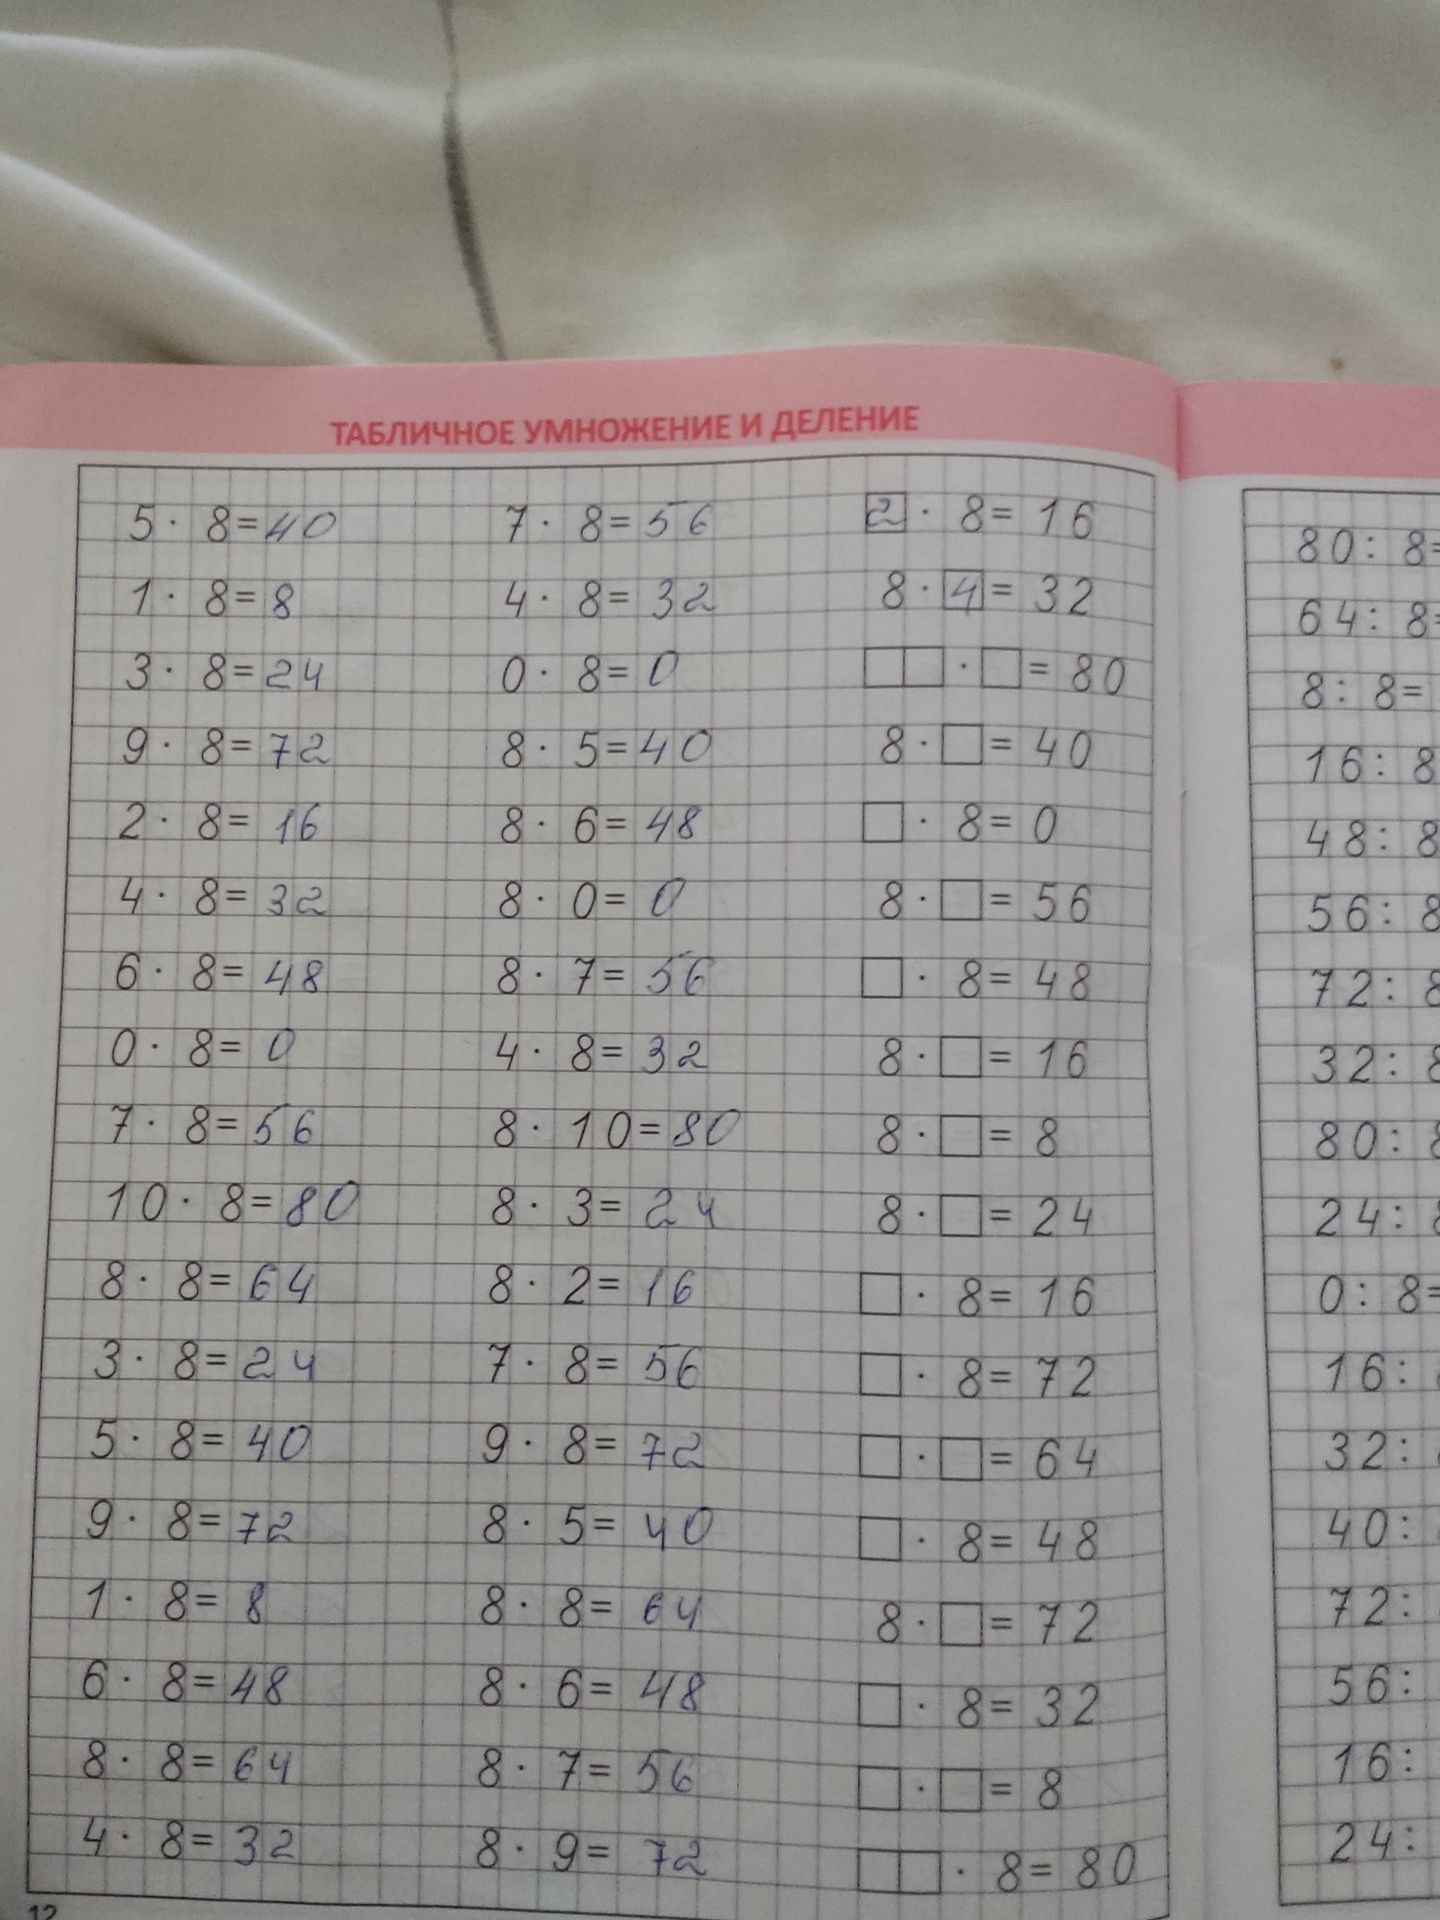 ТАБЛИЧНОЕ УМНОЖЕНИЕ И ДЕЛЕНИЕ
5 · 8 = 40
1 · 8 = 8
3 · 8 = 24
9 · 8 = 72
2 · 8 = 16
4 · 8 = 32
6 · 8 = 48
0 · 8 = 0
7 · 8 = 56
10 · 8 = 80
8 · 8 = 64
3 · 8 = 24
5 · 8 = 40
9 · 8 = 72
1 · 8 = 8
6 · 8 = 48
8 · 8 = 64
4 · 8 = 32
7 · 8 = 56
4 · 8 = 32
0 · 8 = 0
8 · 5 = 40
8 · 6 = 48
8 · 0 = 0
8 · 7 = 56
4 · 8 = 32
8 · 10 = 80
8 · 3 = 24
8 · 2 = 16
7 · 8 = 56
9 · 8 = 72
8 · 5 = 40
8 · 8 = 64
8 · 6 = 48
8 · 7 = 56
8 · 9 = 72
2 · 8 = 16
8 · 4 = 32
□□ · □ = 80
8 · □ = 40
□ · 8 = 0
8 · □ = 56
□ · 8 = 48
8 · □ = 16
8 · □ = 8
8 · □ = 24
□ · 8 = 16
□ · 8 = 72
□ · □ = 64
□ · 8 = 48
8 · □ = 72
□ · 8 = 32
□ · □ = 8
□□ · 8 = 80
12
80 : 8 =
64 : 8 =
8 : 8 =
16 : 8
48 : 8
56 : 8
72 : 8
32 : 8
80 : 8
24 : 8
0 : 8 =
16 :
32 :
40 :
72 :
56 :
16 :
24 :